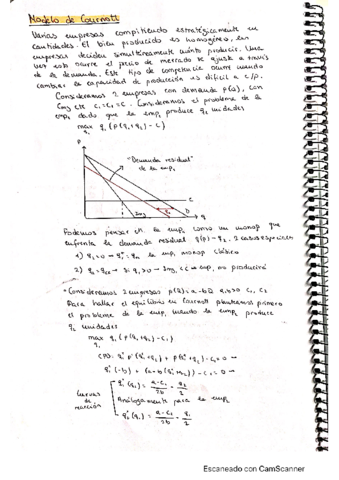 Modelo de Cournot
Varias empresas compitiendo estratégicamente en
cantidades. El bien producido es homogéneo, las
empresas deciden simultáneamente cuánto producir. Una
vez esto ocurre el precio de mercado se ajusta a través
de la demanda. Este tipo de competencia ocurre cuando
cambiar la capacidad de producción es difícil a c/p.
Consideramos 2 empresas con demanda p(Q), con
C₁ = C₂ = C. Consideramos el problema de la
emp₁ dado que la emp₂ produce q₂ unidades
max q₁ (p(q₁+q₂) - c)
q₁
P
"Demanda residual"
de la emp₁
C
Img
D
q
Podemos pensar en la emp₁ como un monop que
enfrenta la demanda residual q(p) - q₂. 2 casos
1) q₂=0 → q₁*=qm la emp₁ monop clásico
2) si q₁>0 → Img₁<C → emp₁ no producirá
• Consideramos 2 empresas p(Q)=a-bQ
Para hallar el equilibrio en Cournot planteamos primero
el problema de la emp₁ cuando la emp₂ produce
q₂ unidades
max q₁ (p(q₁+q₂) - c₁)
q₁
CPO: q₁* p'(q₁*+q₂) + p(q₁*+q₂) - c₁=0 →
q₁*(-b) + (a-b(q₁*+q₂)) - c₁ = 0 →
Curvas
de
reacción
q₁*(q₂) = a-c₁/2b - q₂/2
Análogamente para la emp₂
q₂*(q₁) = a-c₂/2b - q₁/2
Escaneado con CamScanner